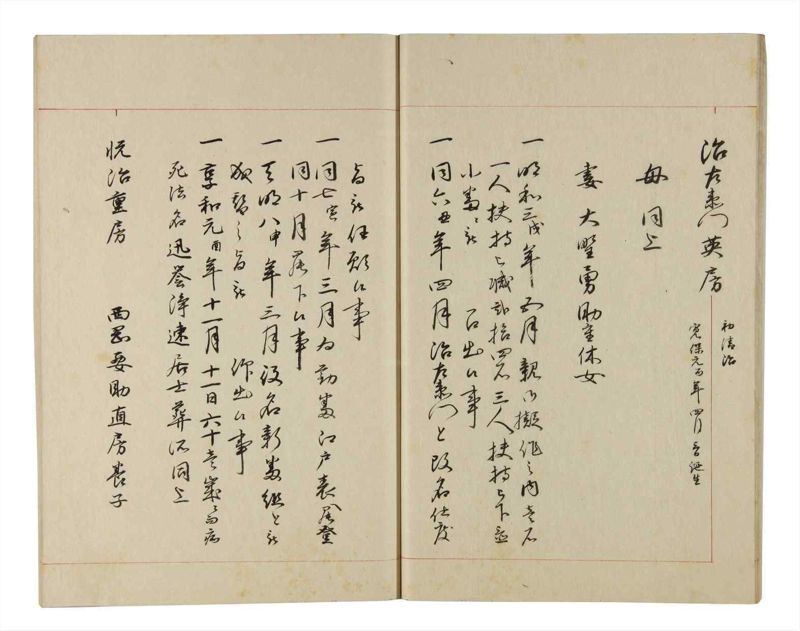 治左衛門英房
初清治
寛保元酉年四月 誕生
母同上
妻 大野勇助重休女
一 明和三戌年五月親 擬作之内 石
一人扶持 減 拾四石三人扶持 下
小番 被 召出候事
一 同六丑年四月治左衛門と改名仕度
旨被 任願候事
一 同七寅年三月為勤番江戸表罷登
同十月罷下候事
一 天明八申年三月役名新番組と被
改 之旨被 仰出候事
一 享和元酉年十一月十一日六十 歳 病
死法名迅誉浄速居士葬所同上
悦治重房 西 要助直房 子